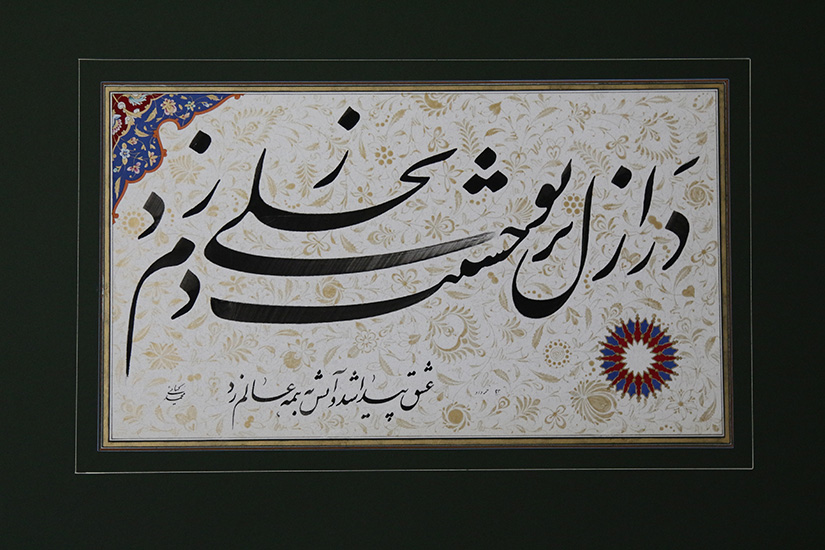 دَر ازل پرتو حسنت ز تجلی دم زد
عشق پیدا شد و آتش به همه عالم زد